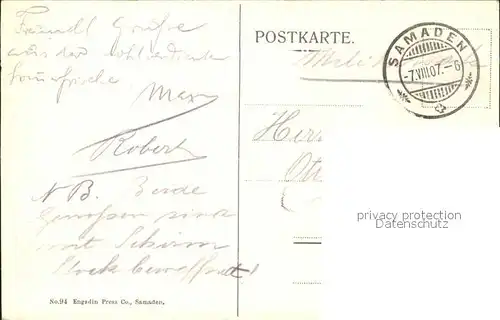 Freundl Grüße
aus der wohlverdienten
Sommerfrische
Max
Robert
N B. Beide
Genossen sind
mit Schirm
Stock bewaffnet!
No. 94 Engadin Press Co., Samaden.
POSTKARTE.
SAMADEN
-7.VIII.07.-6
Herr
privacy protection
Datenschutz